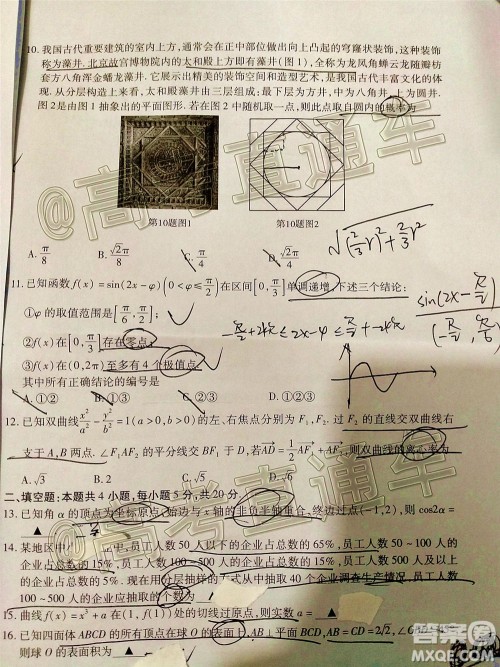 10. 我国古代重要建筑的室内上方，通常会在正中部位做出向上凸起的穹窿状装饰，这种装饰
称为藻井. 北京故宫博物院内的太和殿上方即有藻井(图1)，全称为龙凤角蝉云龙随瓣枋
套方八角浑金蟠龙藻井. 它展示出精美的装饰空间和造型艺术，是我国古代丰富文化的体
现. 从分层构造上来看，太和殿藻井由三层组成：最下层为方井，中为八角井，上为圆井.
图2是由图1抽象出的平面图形. 若在图2中随机取一点，则此点取自圆内的概率为
第10题图1
第10题图2
A. π/8 B. √2π/8 C. π/4 D. √2π/4
√((2/3 r)²+2/3 r²
11. 已知函数f(x)=sin(2x-φ)(0<φ≤π/2)在区间[0,π/3]单调递增，下述三个结论：
①φ的取值范围是[π/6,π/2]；
②f(x)在[0,π/3]存在零点；
③f(x)在(0,2π)至多有4个极值点.
其中所有正确结论的编号是
A. ①② B. ①③ C. ②③ D. ①②③
12. 已知双曲线x²/a²-y²/b²=1(a>0,b>0)的左、右焦点分别为F₁,F₂. 过F₂的直线交双曲线右
支于A,B两点. ∠F₁AF₂的平分线交BF₁于D，若AD=1/2AF₁+AF₂，则双曲线的离心率为
A. √3 B. 2 C. √5 D. √6
二、填空题：本题共4小题，每小题5分，共20分.
13. 已知角α的顶点为坐标原点，始边与x轴的非负半轴重合，终边过点(-1,2)，则cos2α=
▲
14. 某地区中，员工人数50人以下的企业占总数的65%，员工人数50~100人的
企业占总数的15%，员工人数100~500人的企业占总数的15%，员工人数500人及以上
的企业占总数的5%. 现在用分层抽样的方式从中抽取40个企业调查生产情况，员工人数
100~500人的企业应抽取的个数为
15. 曲线f(x)=x³+a在(1,f(1))处的切线过原点，则实数a= ▲
16. 已知四面体ABCD的所有顶点在球O的表面上，AB⊥平面BCD，AB=CD=2√2，∠C
则球O的表面积为 ▲
@高考直通车
@高考直通车
答案圈